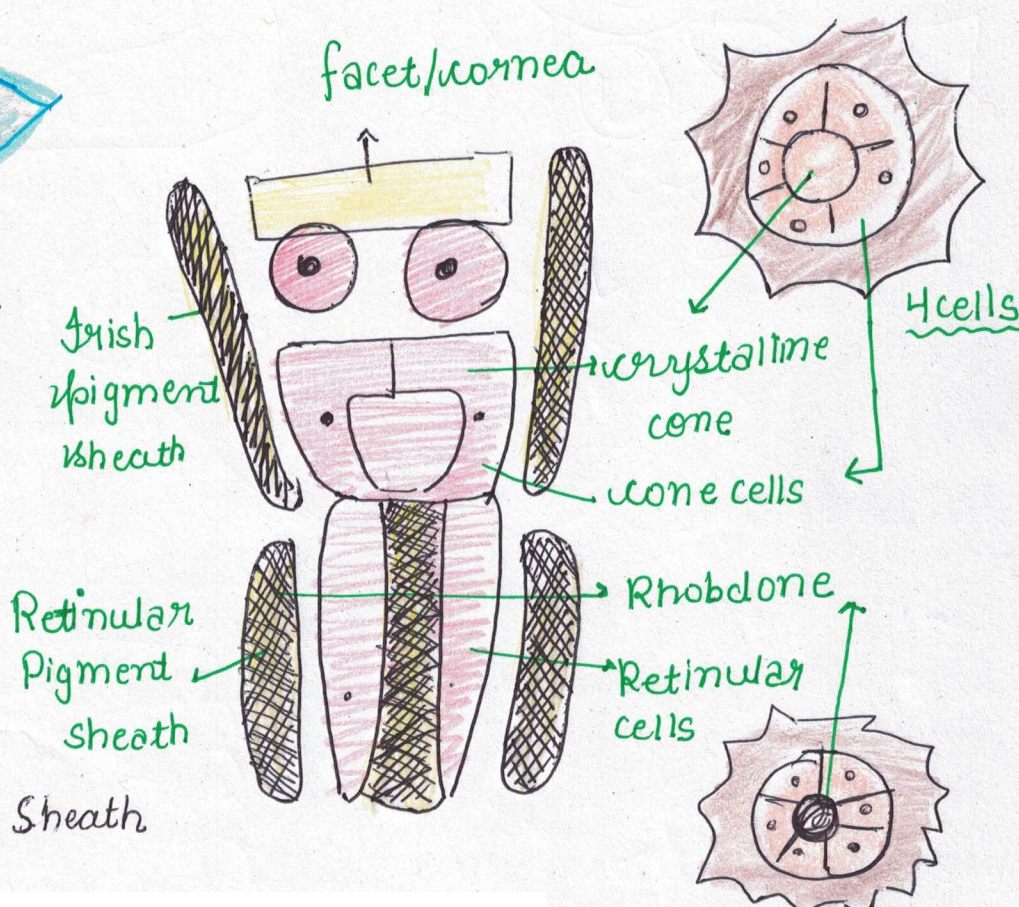 facet/cornea
Irish
pigment
sheath
4 cells
crystalline
cone
cone cells
Rhobdone
Retinular
Pigment
sheath
Retinular
cells
Sheath